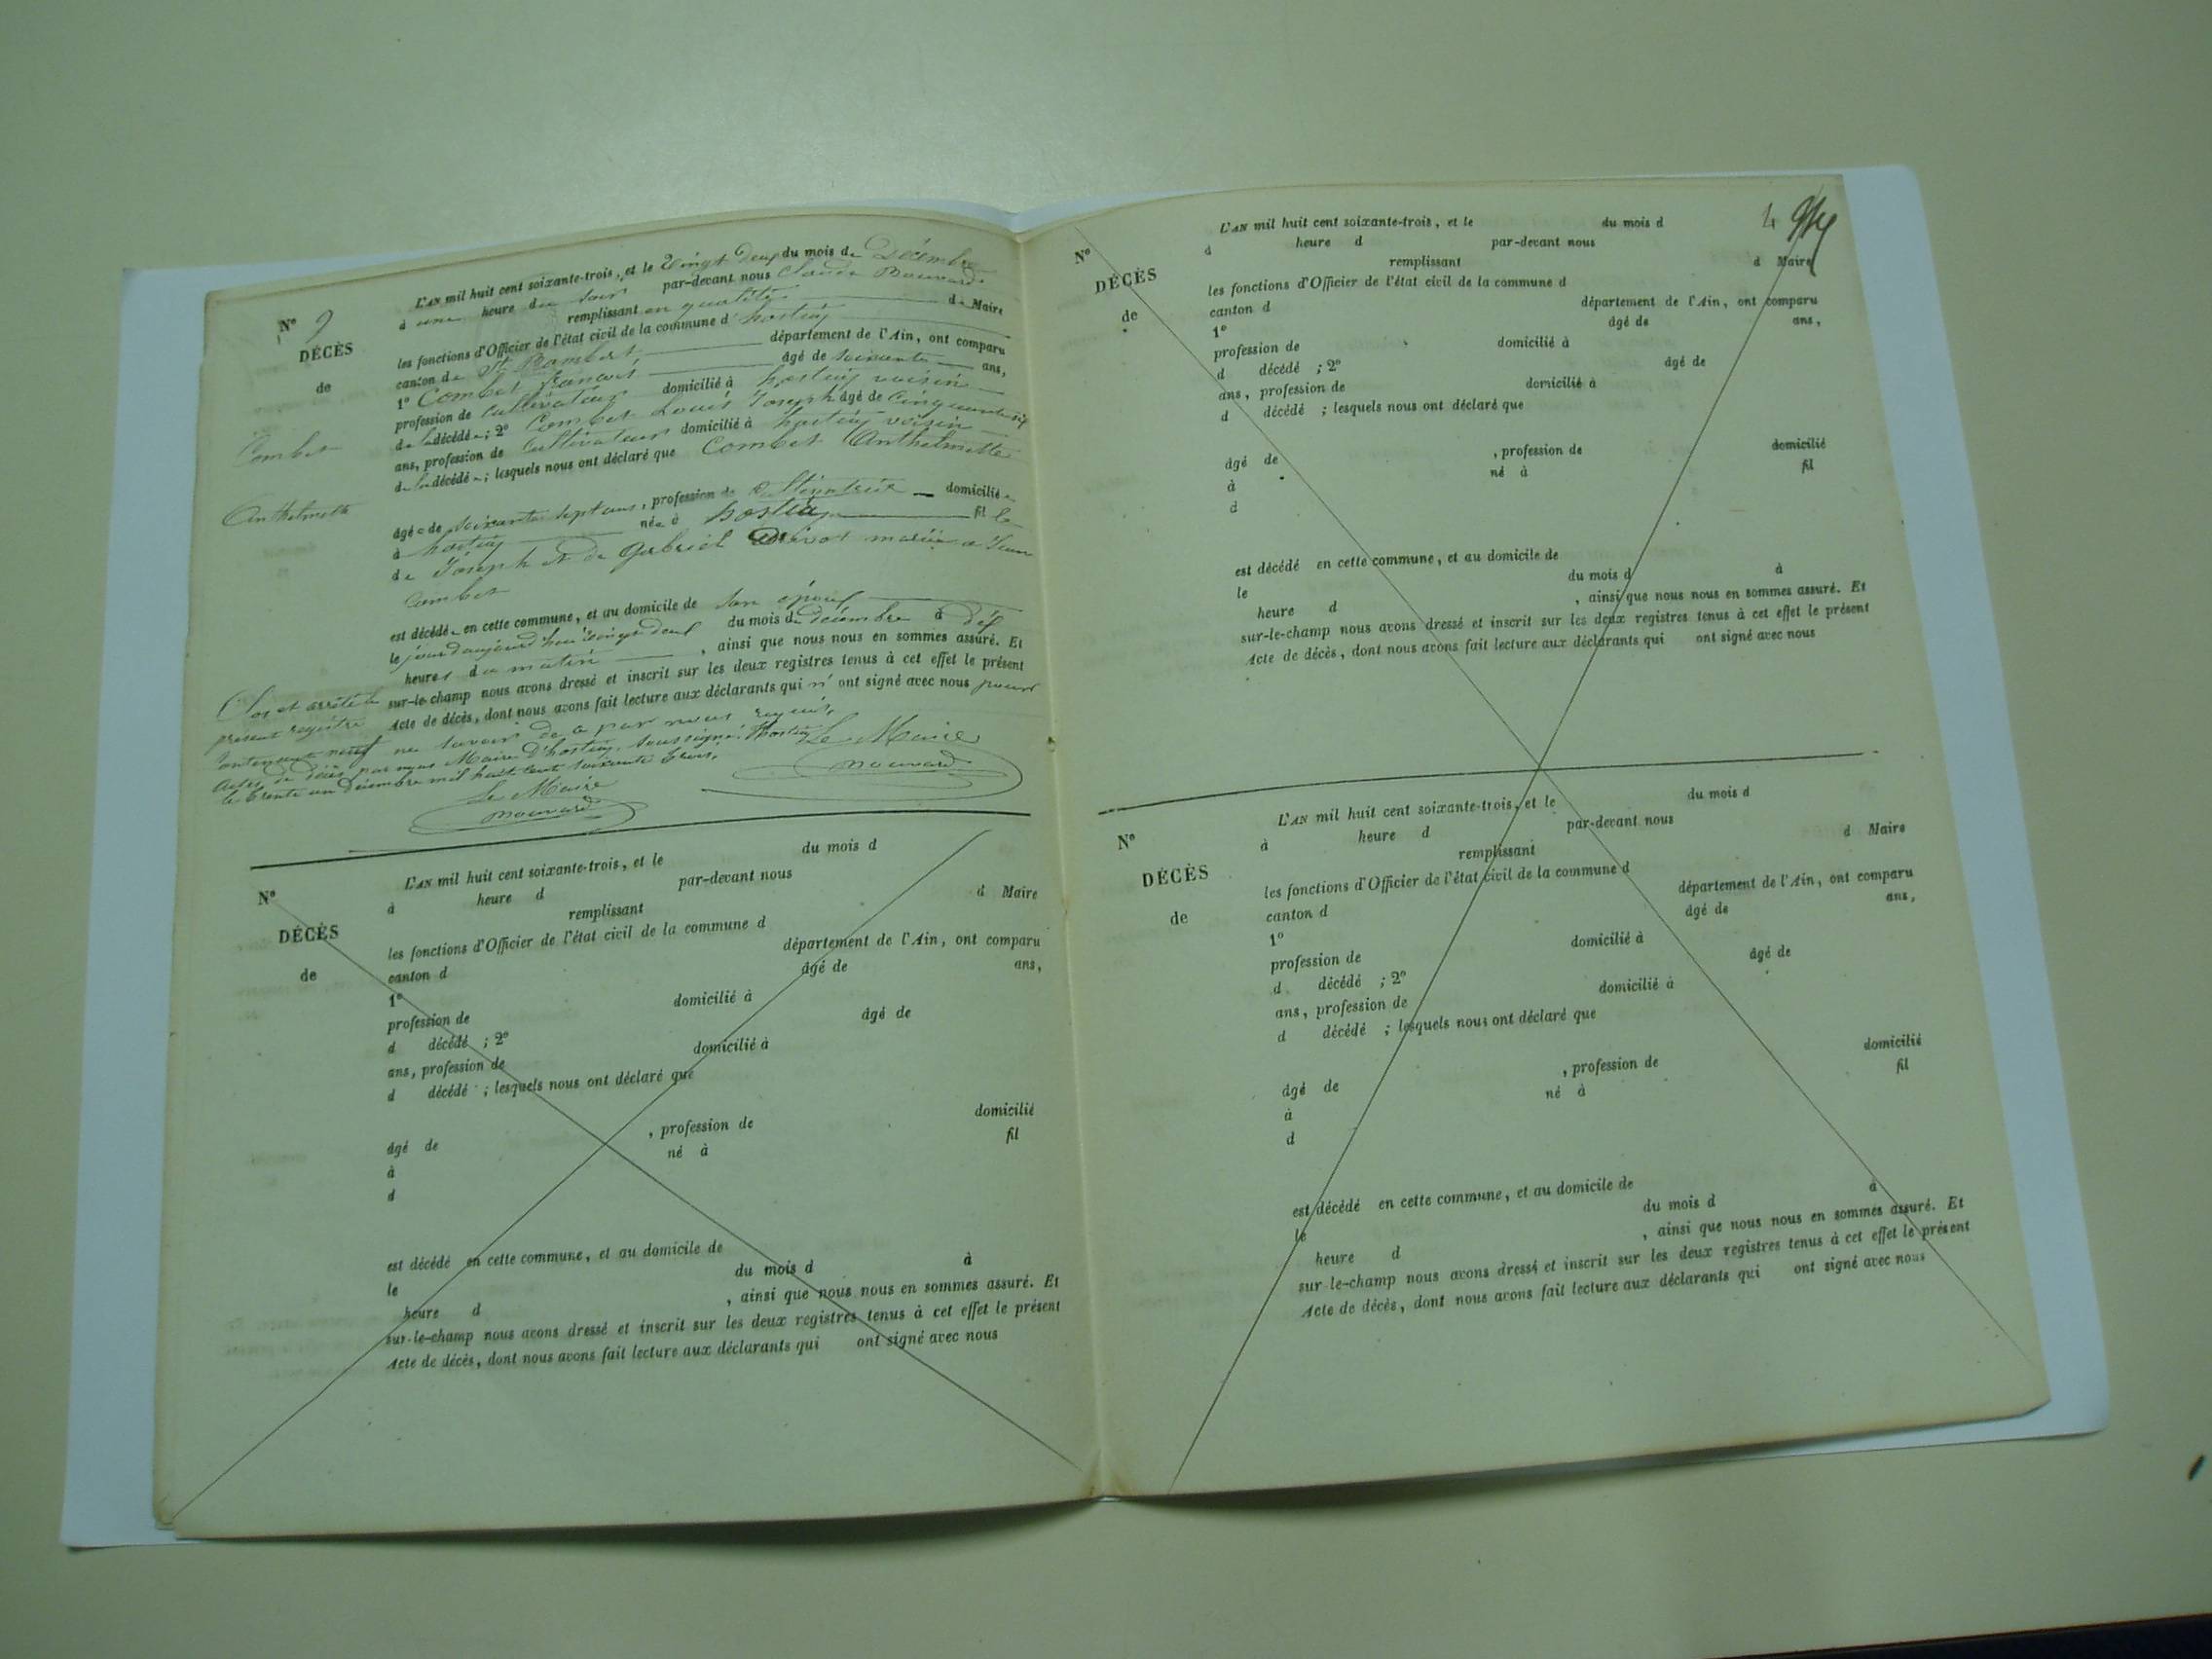 N° 9
DÉCÈS
de
Combet
Anthelmette
L'AN mil huit cent soixante-trois, et le Vingt deux du mois de Décembre
à une heure du soir par-devant nous Claude
remplissant en qualité de Maire
les fonctions d'Officier de l'état civil de la commune d'hostiaz
canton de St Rambert département de l'Ain, ont comparu
1° Combet françois âgé de soixante ans,
profession de Cultivateur domicilié à hostiaz voisin
de la décédée; 2° Combet Louis Joseph âgé de Cinquante six
ans, profession de Cultivateur domicilié à hostiaz voisin
de la décédée; lesquels nous ont déclaré que Combet Anthelmette
âgée de soixante sept ans, profession de Cultivatrice domiciliée
à hostiaz née à hostiaz fille
de Joseph et de Gabriel mariée a Jean
Combet
est décédée en cette commune, et au domicile de son époux
le jour d'aujourd'hui vingt deux du mois de décembre à dix
heures du matin, ainsi que nous nous en sommes assuré. Et
sur-le-champ nous avons dressé et inscrit sur les deux registres tenus à cet effet le présent
Acte de décès, dont nous avons fait lecture aux déclarants qui n'ont signé avec nous pour
ne savoir de a par nous requis.
Le Maire
Clos et arrêté le
présent registre
contenant neuf
actes de décès par nous Maire D'hostiaz, soussigné. Hostiaz
le trente un décembre mil huit cent soixante trois.
Le Maire
N°
DÉCÈS
de
L'AN mil huit cent soixante-trois, et le du mois d
à heure d par-devant nous
remplissant d Maire
les fonctions d'Officier de l'état civil de la commune d
canton d département de l'Ain, ont comparu
1° âgé de ans,
profession de domicilié à
d décédé ; 2° âgé de
ans, profession de domicilié à
d décédé ; lesquels nous ont déclaré que
âgé de , profession de domicilié
à né à fil
d
est décédé en cette commune, et au domicile de
le du mois d à
heure d , ainsi que nous nous en sommes assuré. Et
sur-le-champ nous avons dressé et inscrit sur les deux registres tenus à cet effet le présent
Acte de décès, dont nous avons fait lecture aux déclarants qui ont signé avec nous
4
N°
DÉCÈS
de
L'AN mil huit cent soixante-trois, et le du mois d
à heure d par-devant nous
remplissant d Maire
les fonctions d'Officier de l'état civil de la commune d
canton d département de l'Ain, ont comparu
1° âgé de ans,
profession de domicilié à
d décédé ; 2° âgé de
ans, profession de domicilié à
d décédé ; lesquels nous ont déclaré que
âgé de , profession de domicilié
à né à fil
d
est décédé en cette commune, et au domicile de
le du mois d à
heure d , ainsi que nous nous en sommes assuré. Et
sur-le-champ nous avons dressé et inscrit sur les deux registres tenus à cet effet le présent
Acte de décès, dont nous avons fait lecture aux déclarants qui ont signé avec nous
N°
DÉCÈS
de
L'AN mil huit cent soixante-trois, et le du mois d
à heure d par-devant nous
remplissant d Maire
les fonctions d'Officier de l'état civil de la commune d
canton d département de l'Ain, ont comparu
1° âgé de ans,
profession de domicilié à
d décédé ; 2° âgé de
ans, profession de domicilié à
d décédé ; lesquels nous ont déclaré que
âgé de , profession de domicilié
à né à fil
d
est décédé en cette commune, et au domicile de
le du mois d à
heure d , ainsi que nous nous en sommes assuré. Et
sur-le-champ nous avons dressé et inscrit sur les deux registres tenus à cet effet le présent
Acte de décès, dont nous avons fait lecture aux déclarants qui ont signé avec nous